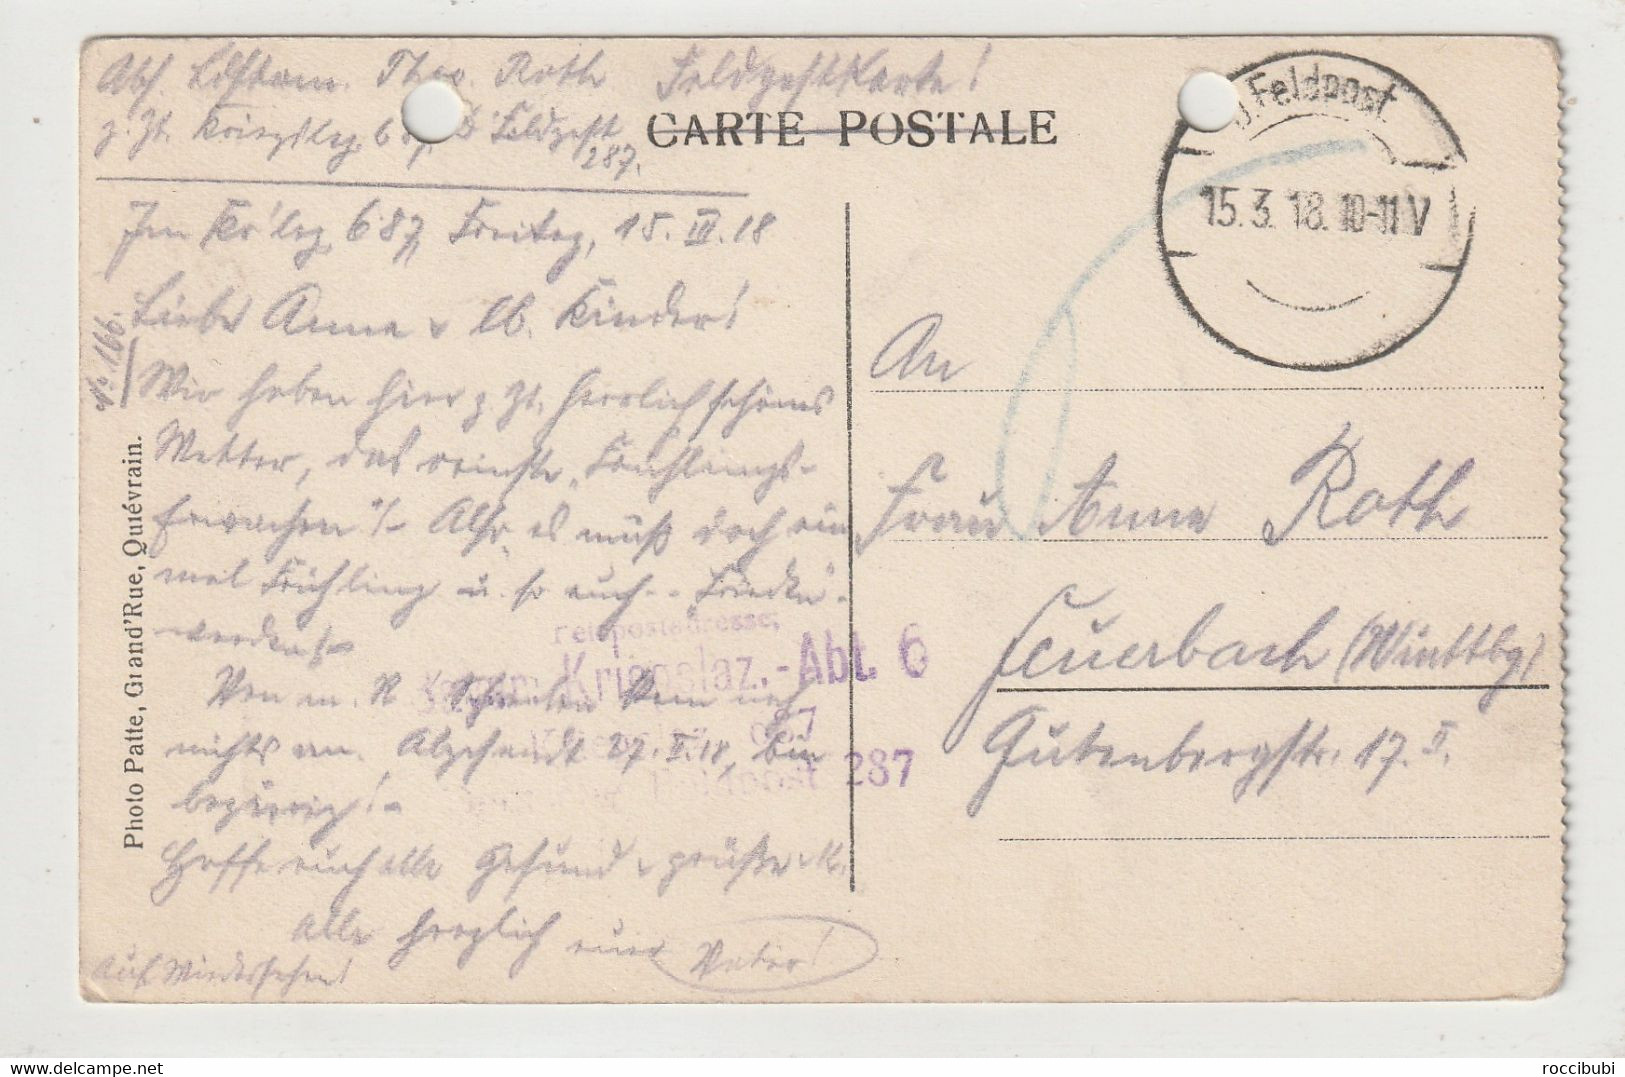 Abs. Ldstm. Theo. Roth Feldpostkarte!
z. Zt. Kriegslaz. 687, D. Feldpost
287.
CARTE POSTALE
Feldpost
15.3.18.10-11V
Im Kr'laz. 687, Freitag, 15. III. 18
Liebe Anna u. lb. Kinder!
Wir haben hier z. Zt. herrlich schönes
Wetter, das reinste „Frühlings-
Erwachen"!- Also, es muß doch ein
mal Frühling u. so auch
werden!-
Von m. noch
nichts an. 27. 18, bin
Hoffe euch alle Gesund u. grüße
Alle herzlich euer Vater!
Auf Wiedersehen!
166.
Photo Patte, Grand'Rue, Quiévrain.
Feldpostadresse,
Kriegslaz.-Abt. 6
687
287
An
Frau Anna Roth
Feuerbach (Württbg)
Gutenbergstr. 17. II.
roccibubi